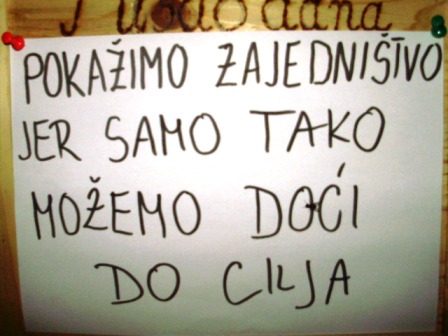 dana
POKAŽIMO ZAJEDNIŠTVO
JER SAMO TAKO
MOŽEMO DOĆI
DO CILJA